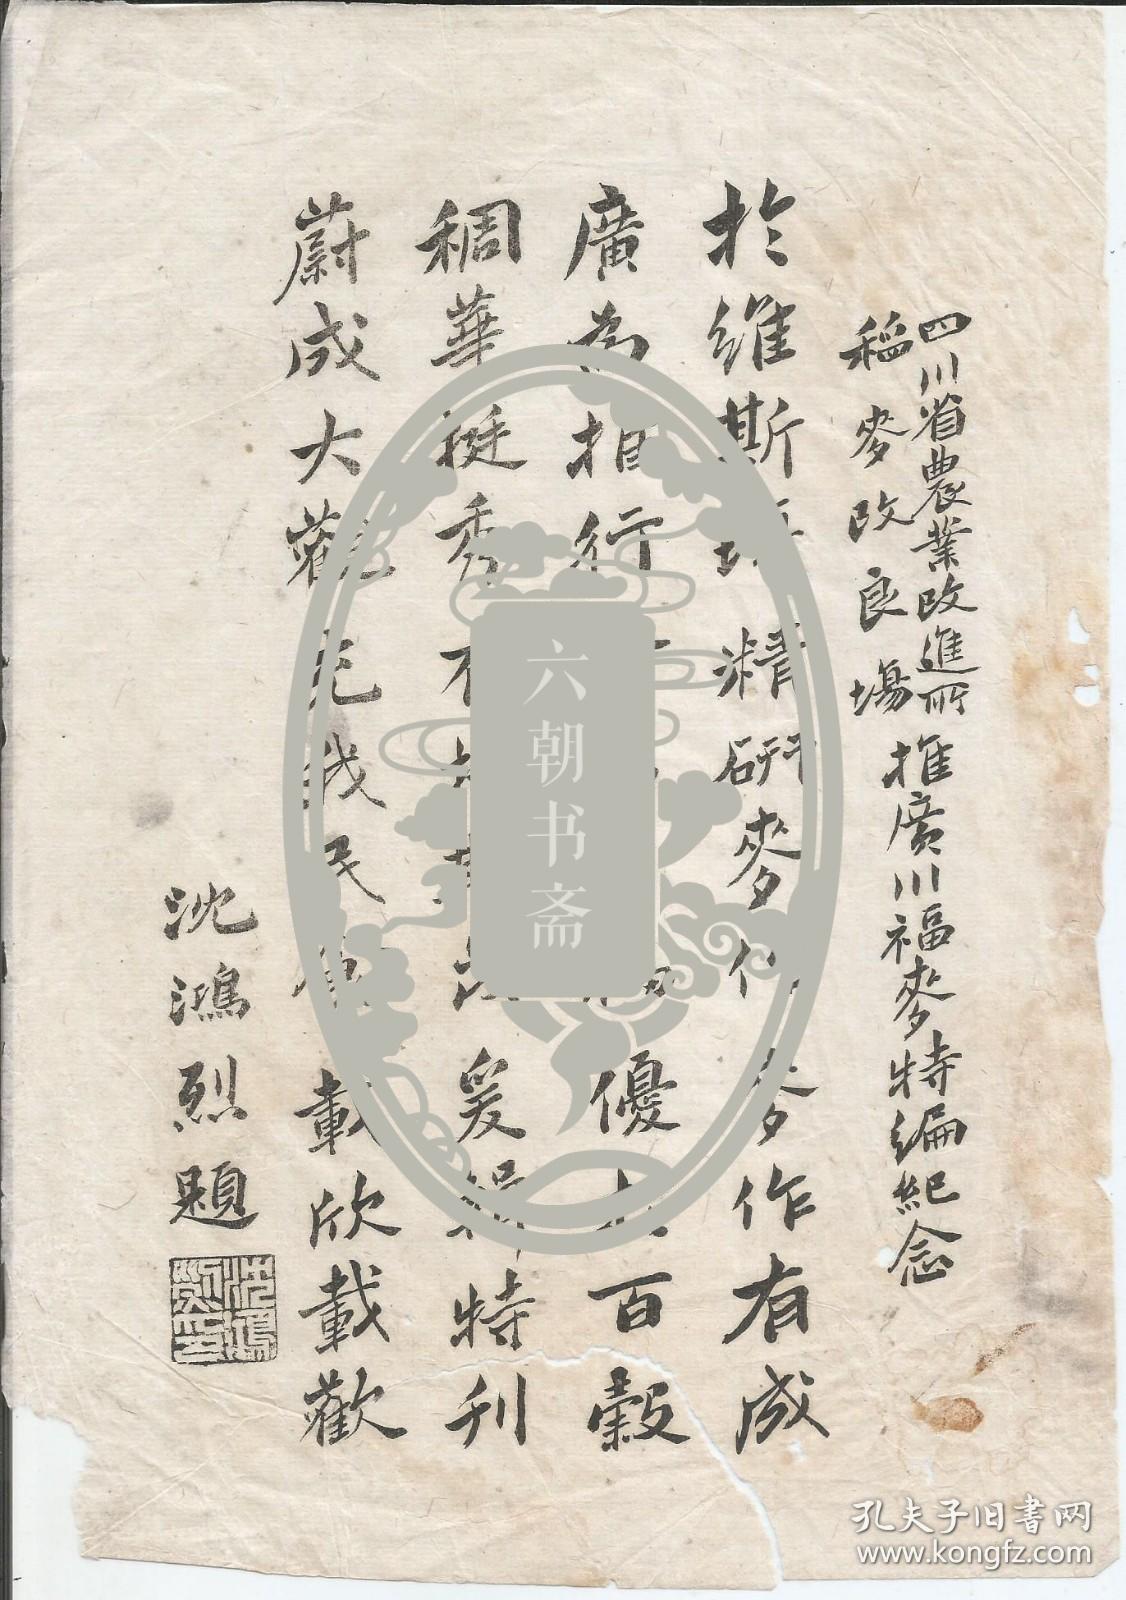 四川省農業改進所
稻麥改良場
推廣川福麥特編紀念
於維斯場精研麥作有成
廣為推行優百穀
稠華挺秀爰輯特刊
蔚成大觀充我民食載欣載歡
沈鴻烈題
沈鴻烈印
六朝书斋
孔夫子旧書网
www.kongfz.com